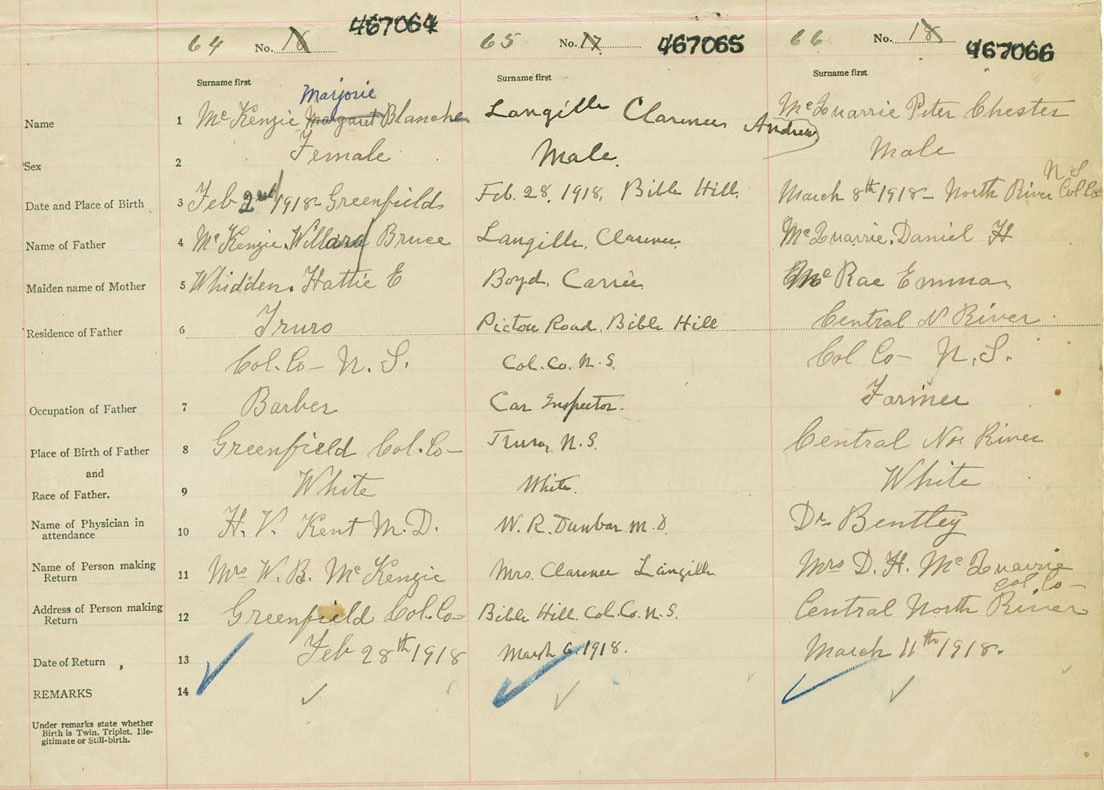 467064 467065 467066
64 No. 16 65 No. 17 66 No. 18
Surname first Surname first Surname first
Marjorie
Name 1 McKenzie Margaret Blanche Langille Clarence Andrew McQuarrie Peter Chester
Sex 2 Female Male. Male
N S
Date and Place of Birth 3 Feb 2nd 1918- Greenfields Feb. 28, 1918, Bible Hill. March 8th 1918- North River Col Co
Name of Father 4 McKenzie. Willard Bruce Langille, Clarence. McQuarrie. Daniel H
Maiden name of Mother 5 Whidden. Hattie E Boyd, Carrie McRae Emma
Residence of Father 6 Truro Pictou Road, Bible Hill Central N River
Col. Co- N. S. Col. Co. N. S. Col Co- N. S.
Occupation of Father 7 Barber Car Inspector. Farmer
Place of Birth of Father 8 Greenfield Col. Co- Truro, N. S. Central Nor River
and
Race of Father. 9 White White. White
Name of Physician in
attendance 10 H. V. Kent M. D. W. R. Dunbar M. D. Dr. Bentley
Name of Person making
Return 11 Mrs W. B. McKenzie Mrs. Clarence Langille Mrs D. H. McQuarrie
Col Co-
Address of Person making
Return 12 Greenfield Col. Co- Bible Hill. Col. Co. N. S. Central North River
Date of Return 13 Feb 28th 1918 March 6, 1918. March 11th 1918.
REMARKS 14
Under remarks state whether
Birth is Twin, Triplet, Ille-
gitimate or Still-birth.